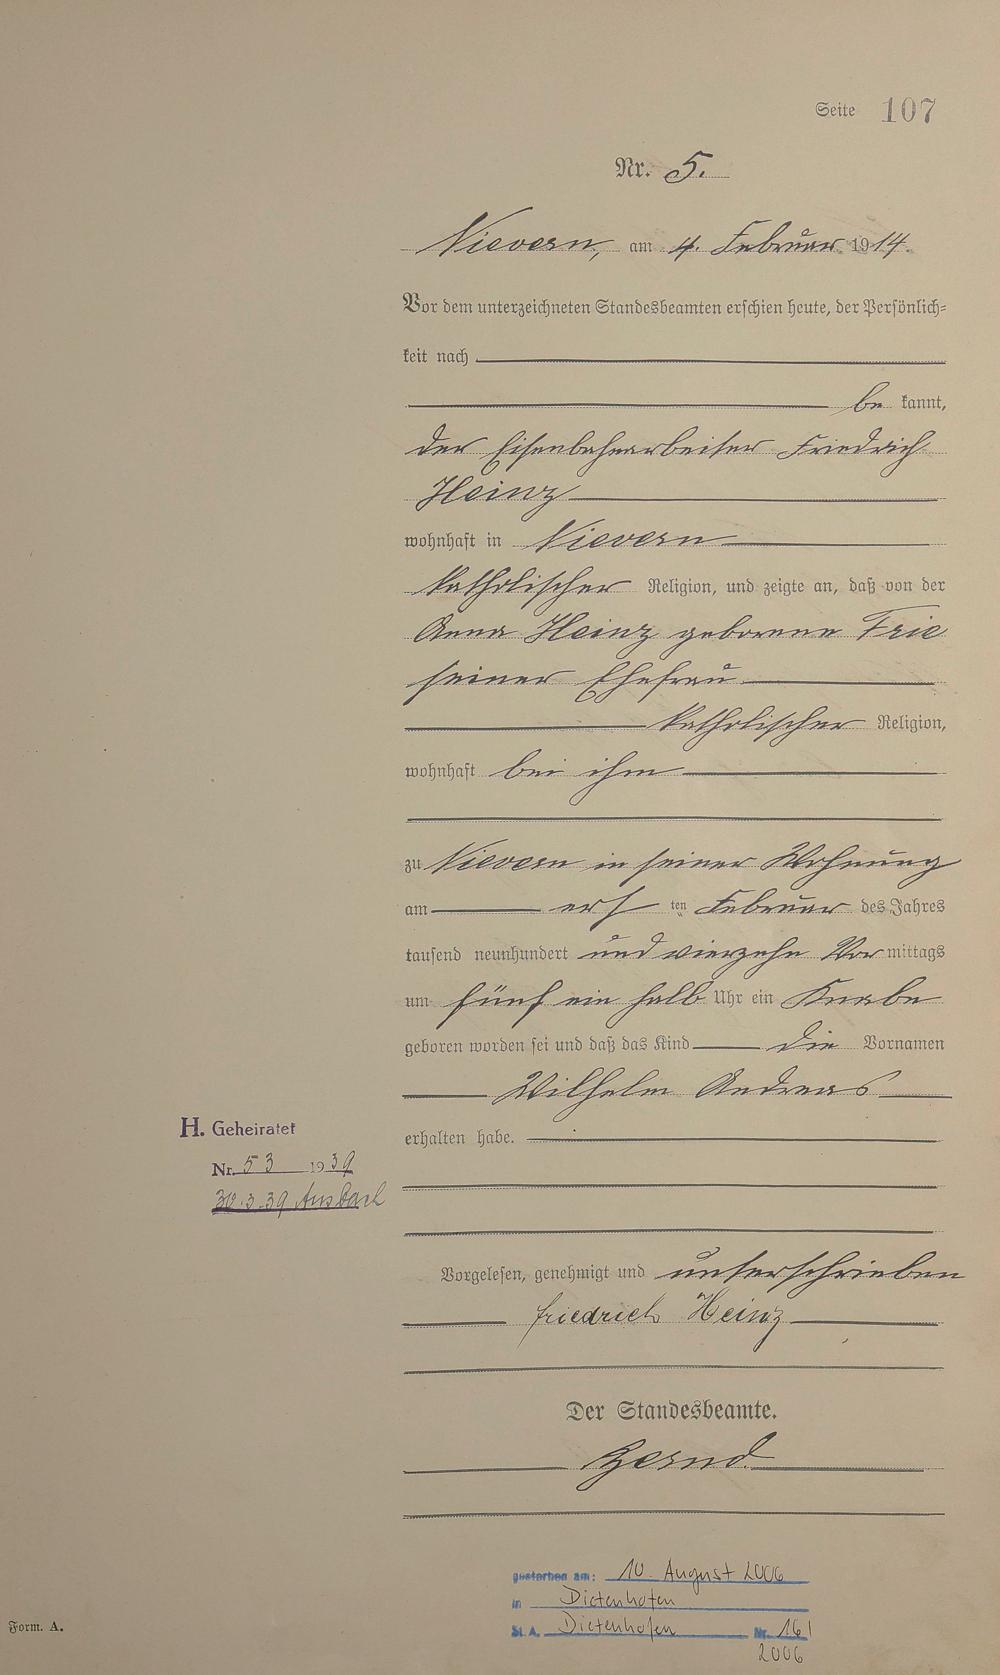 Seite 107
Nr. 5.
Nievern, am 4. Februar 1914.
Vor dem unterzeichneten Standesbeamten erschien heute, der Persönlich=
keit nach
be kannt,
der Eisenbahnarbeiter Friedrich
Heinz
wohnhaft in Nievern
katholischer Religion, und zeigte an, daß von der
Anna Heinz geborene Frie
seiner Ehefrau
katholischer Religion,
wohnhaft bei ihm
zu Nievern in seiner Wohnung
am ersten Februar des Jahres
tausend neunhundert und vierzehn Vor mittags
um fünf ein halb Uhr ein Knabe
geboren worden sei und daß das Kind die Vornamen
Wilhelm Andreas
erhalten habe.
H. Geheiratet
Nr. 53 1939
30.3.39 Ansbach
Vorgelesen, genehmigt und unterschrieben
Friedrich Heinz
Der Standesbeamte.
gestorben am: 10. August 2006
in Dietenhofen
St.A. Dietenhofen Nr. 16/
2006
Form. A.